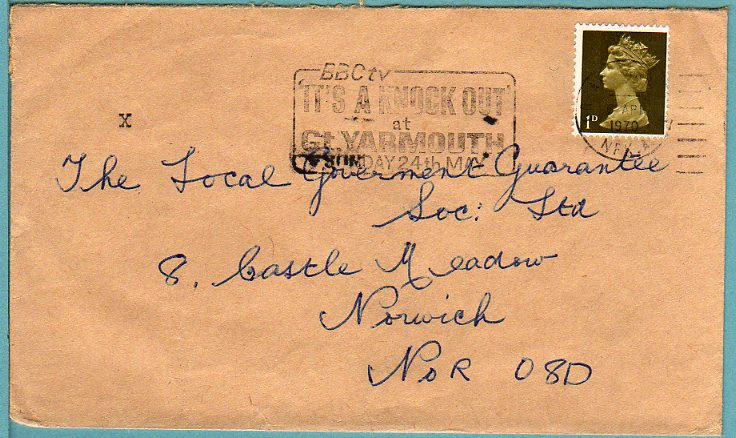 BBCtv
"IT'S A KNOCK OUT"
at
Gt. YARMOUTH
SUNDAY 24th MAY
1D
APR
1970
X
The Local Goverment Guarantee
Soc: Ltd
8, Castle Meadow
Norwich
NOR 08D